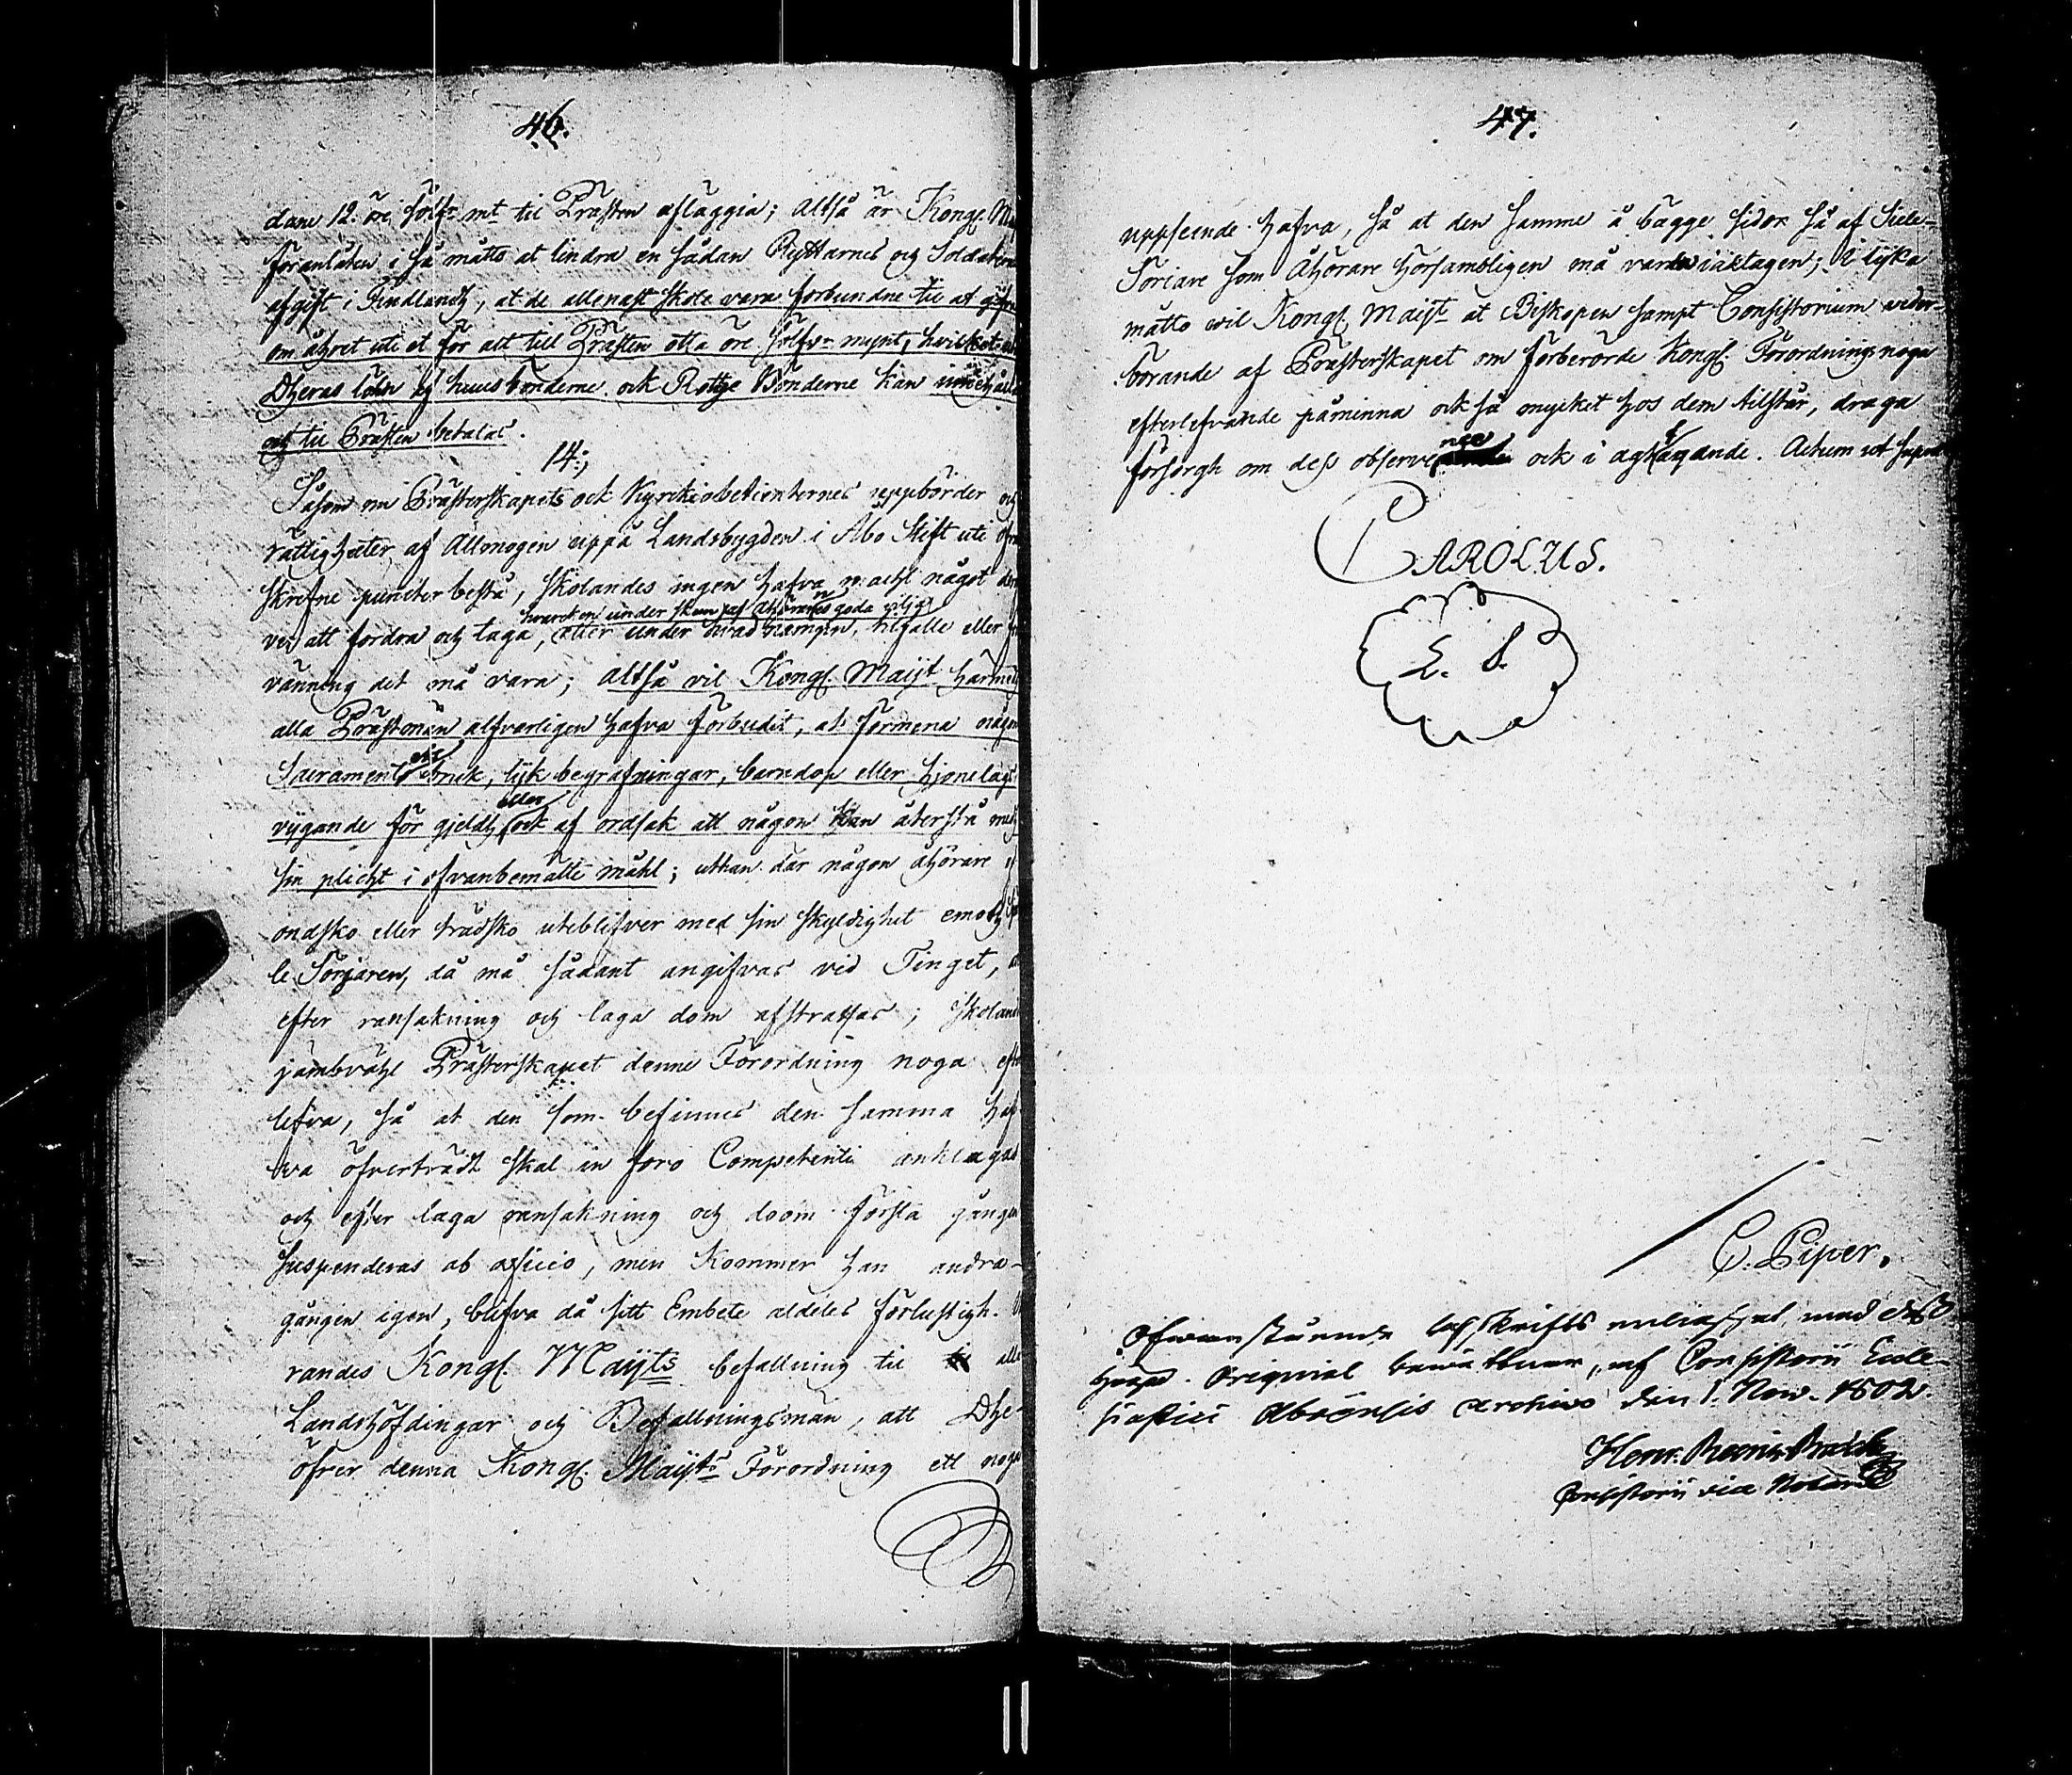 46.
dane 12. öre sölfr mt til Prästen afläggia; Altså är Kongl.
föranlåten i så måtto at lindra en sådan Ryttarnes och Soldaternes
afgift i Findlandh, at de allenast skole vara förbundne til at
om åhret uti et för alt till Prästen otta öre sölfvr mynt, hvilket
Dheras löhn af huusbönderne ock Rottge Bönderne kan
och til Prästen betalas.
14:,
Såsom nu Prästerskapets ock Kyrckiobetienternes uppbörder och
rättigheter af Allmogen uppå Landsbygden i Åbo Stift uti
skrefne puncter bestå, skolandes ingen hafva macht något
hvarcken under sken af Åhörarnes goda vilja
ver att fordra och taga, eller under hvad namn, tilfälle eller
vänning det må vara; altså vil Kongl. Maijt härmed
alla Prästmän alfvarligen hafva förbudit, at förmena någon
Sacramentsens bruk, lijkbegrafningar, barndop eller hjonelags
eller
vijgande för gieldh, ock af ordsak att någon kan återstå med
sin plicht i ofvanbemälte måhl; uthan där någon åhörare
ondsko eller trädsko uteblifver med sin skyldighet emoth
le Sörjaren, då må sådant angifvas vid Tinget,
efter ransakning och laga dom afstraffas; Skolandes
jämbvähl Prästerskapet denne Förordning noga efter
lefva, så at den som befinnes den samma haf-
va öfverträdt skal in foro Competenti anklagas
och efter laga ransakning och doom första gången
suspenderas ab officio, men kommer han andra-
gången igen, blifva då sitt Embete aldeles förlustigh.
randes Kongl. Maijts befallning til alle
Landshöfdingar och Befallningsmän, att Dhe
öfver denna Kongl. Maijts Förordning ett noga
47.
uppseende hafva, så at den samme å bägge sidor så af Siele-
Söriare som Åhörare hörsambligen må varda iakttagen; I lijka
måtto vil Kongl. Maijt at Biskopen sampt Consistorium veder-
börande af Prästerskapet om förberörde Kongl. Förordnings noga
efterlefvande påminna ock så mycket hos dem tilstår, draga
försorgh om dess observerande ock i achttagande. Actum ut supra
CAROLUS.
L. S.
C. Piper.
Ofvanstående afskrifts enlighet med dess
Original af Consistorii Eccle-
siastici Aboënsis Archivo den 1. Nov. 1802
Consistorii vice Notarie